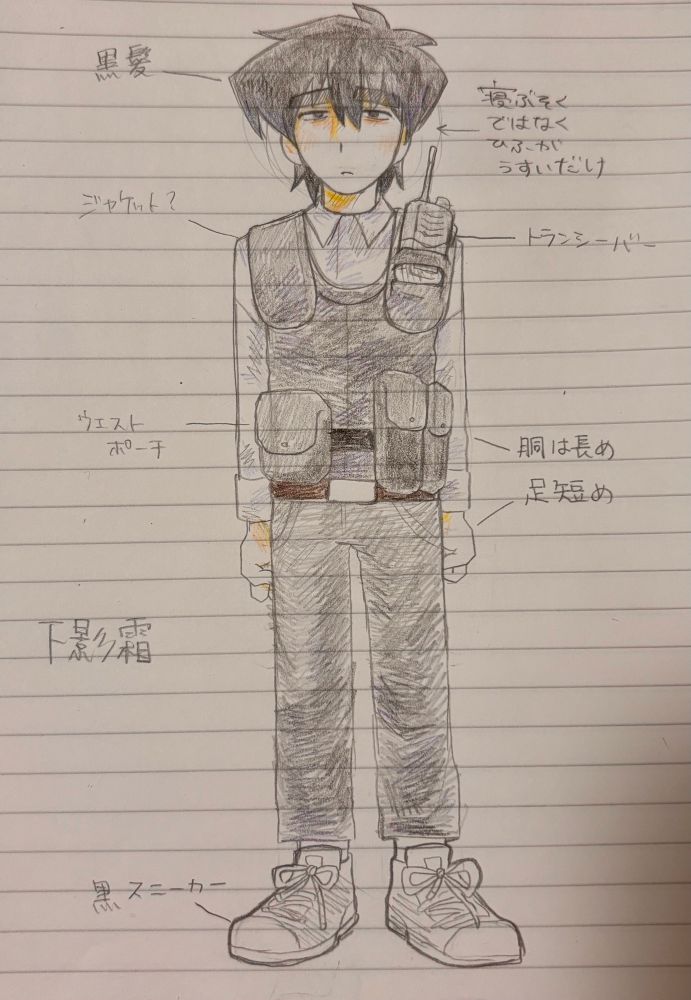 黒髪
寝ぶそく
ではなく
ひふが
うすいだけ
ジャケット?
トランシーバー
ウエスト
ポーチ
胴は長め
足短め
下影霜
黒スニーカー